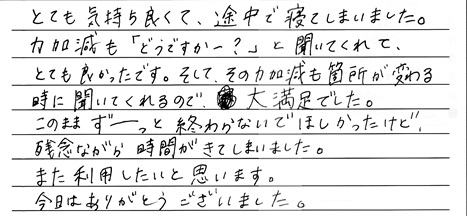 とても気持ち良くて、途中で寝てしまいました。
力加減も「どうですかー？」と聞いてくれて、
とても良かったです。そして、その力加減も箇所が変わる
時に聞いてくれるので、大満足でした。
このままずーっと終わらないでほしかったけど、
残念ながら時間がきてしまいました。
また利用したいと思います。
今日はありがとうございました。